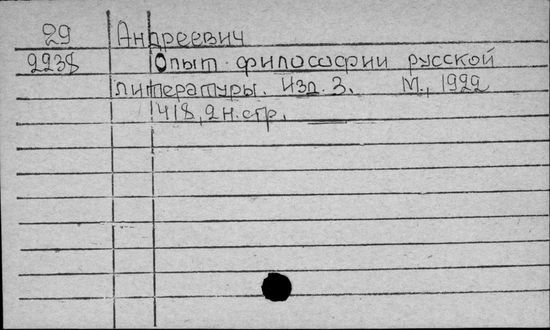 29 Андреевич
2238 Опыт философии русской
литературы. Изд. 3. М., 1922
418, 2 н. стр.